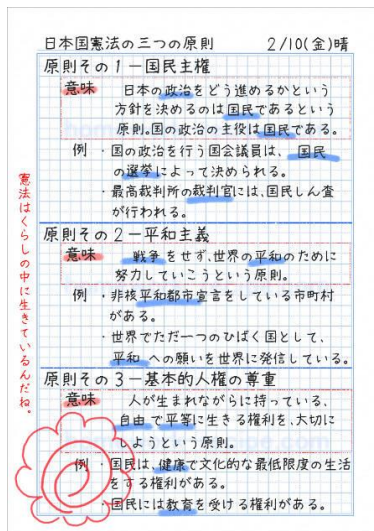 日本国憲法の三つの原則 2/10(金)晴
原則その1－国民主権
意味 日本の政治をどう進めるかという
方針を決めるのは国民であるという
原則。国の政治の主役は国民である。
例 ・国の政治を行う国会議員は、国民
の選挙によって決められる。
・最高裁判所の裁判官には、国民しん査
が行われる。
原則その2－平和主義
意味 戦争をせず、世界の平和のために
努力していこうという原則。
例 ・非核平和都市宣言をしている市町村
がある。
・世界でただ一つのひばく国として、
平和への願いを世界に発信している。
原則その3－基本的人権の尊重
意味 人が生まれながらに持っている、
自由で平等に生きる権利を、大切に
しようという原則。
例 ・国民は、健康で文化的な最低限度の生活
をする権利がある。
・国民には教育を受ける権利がある。
憲法はくらしの中に生きているんだね。